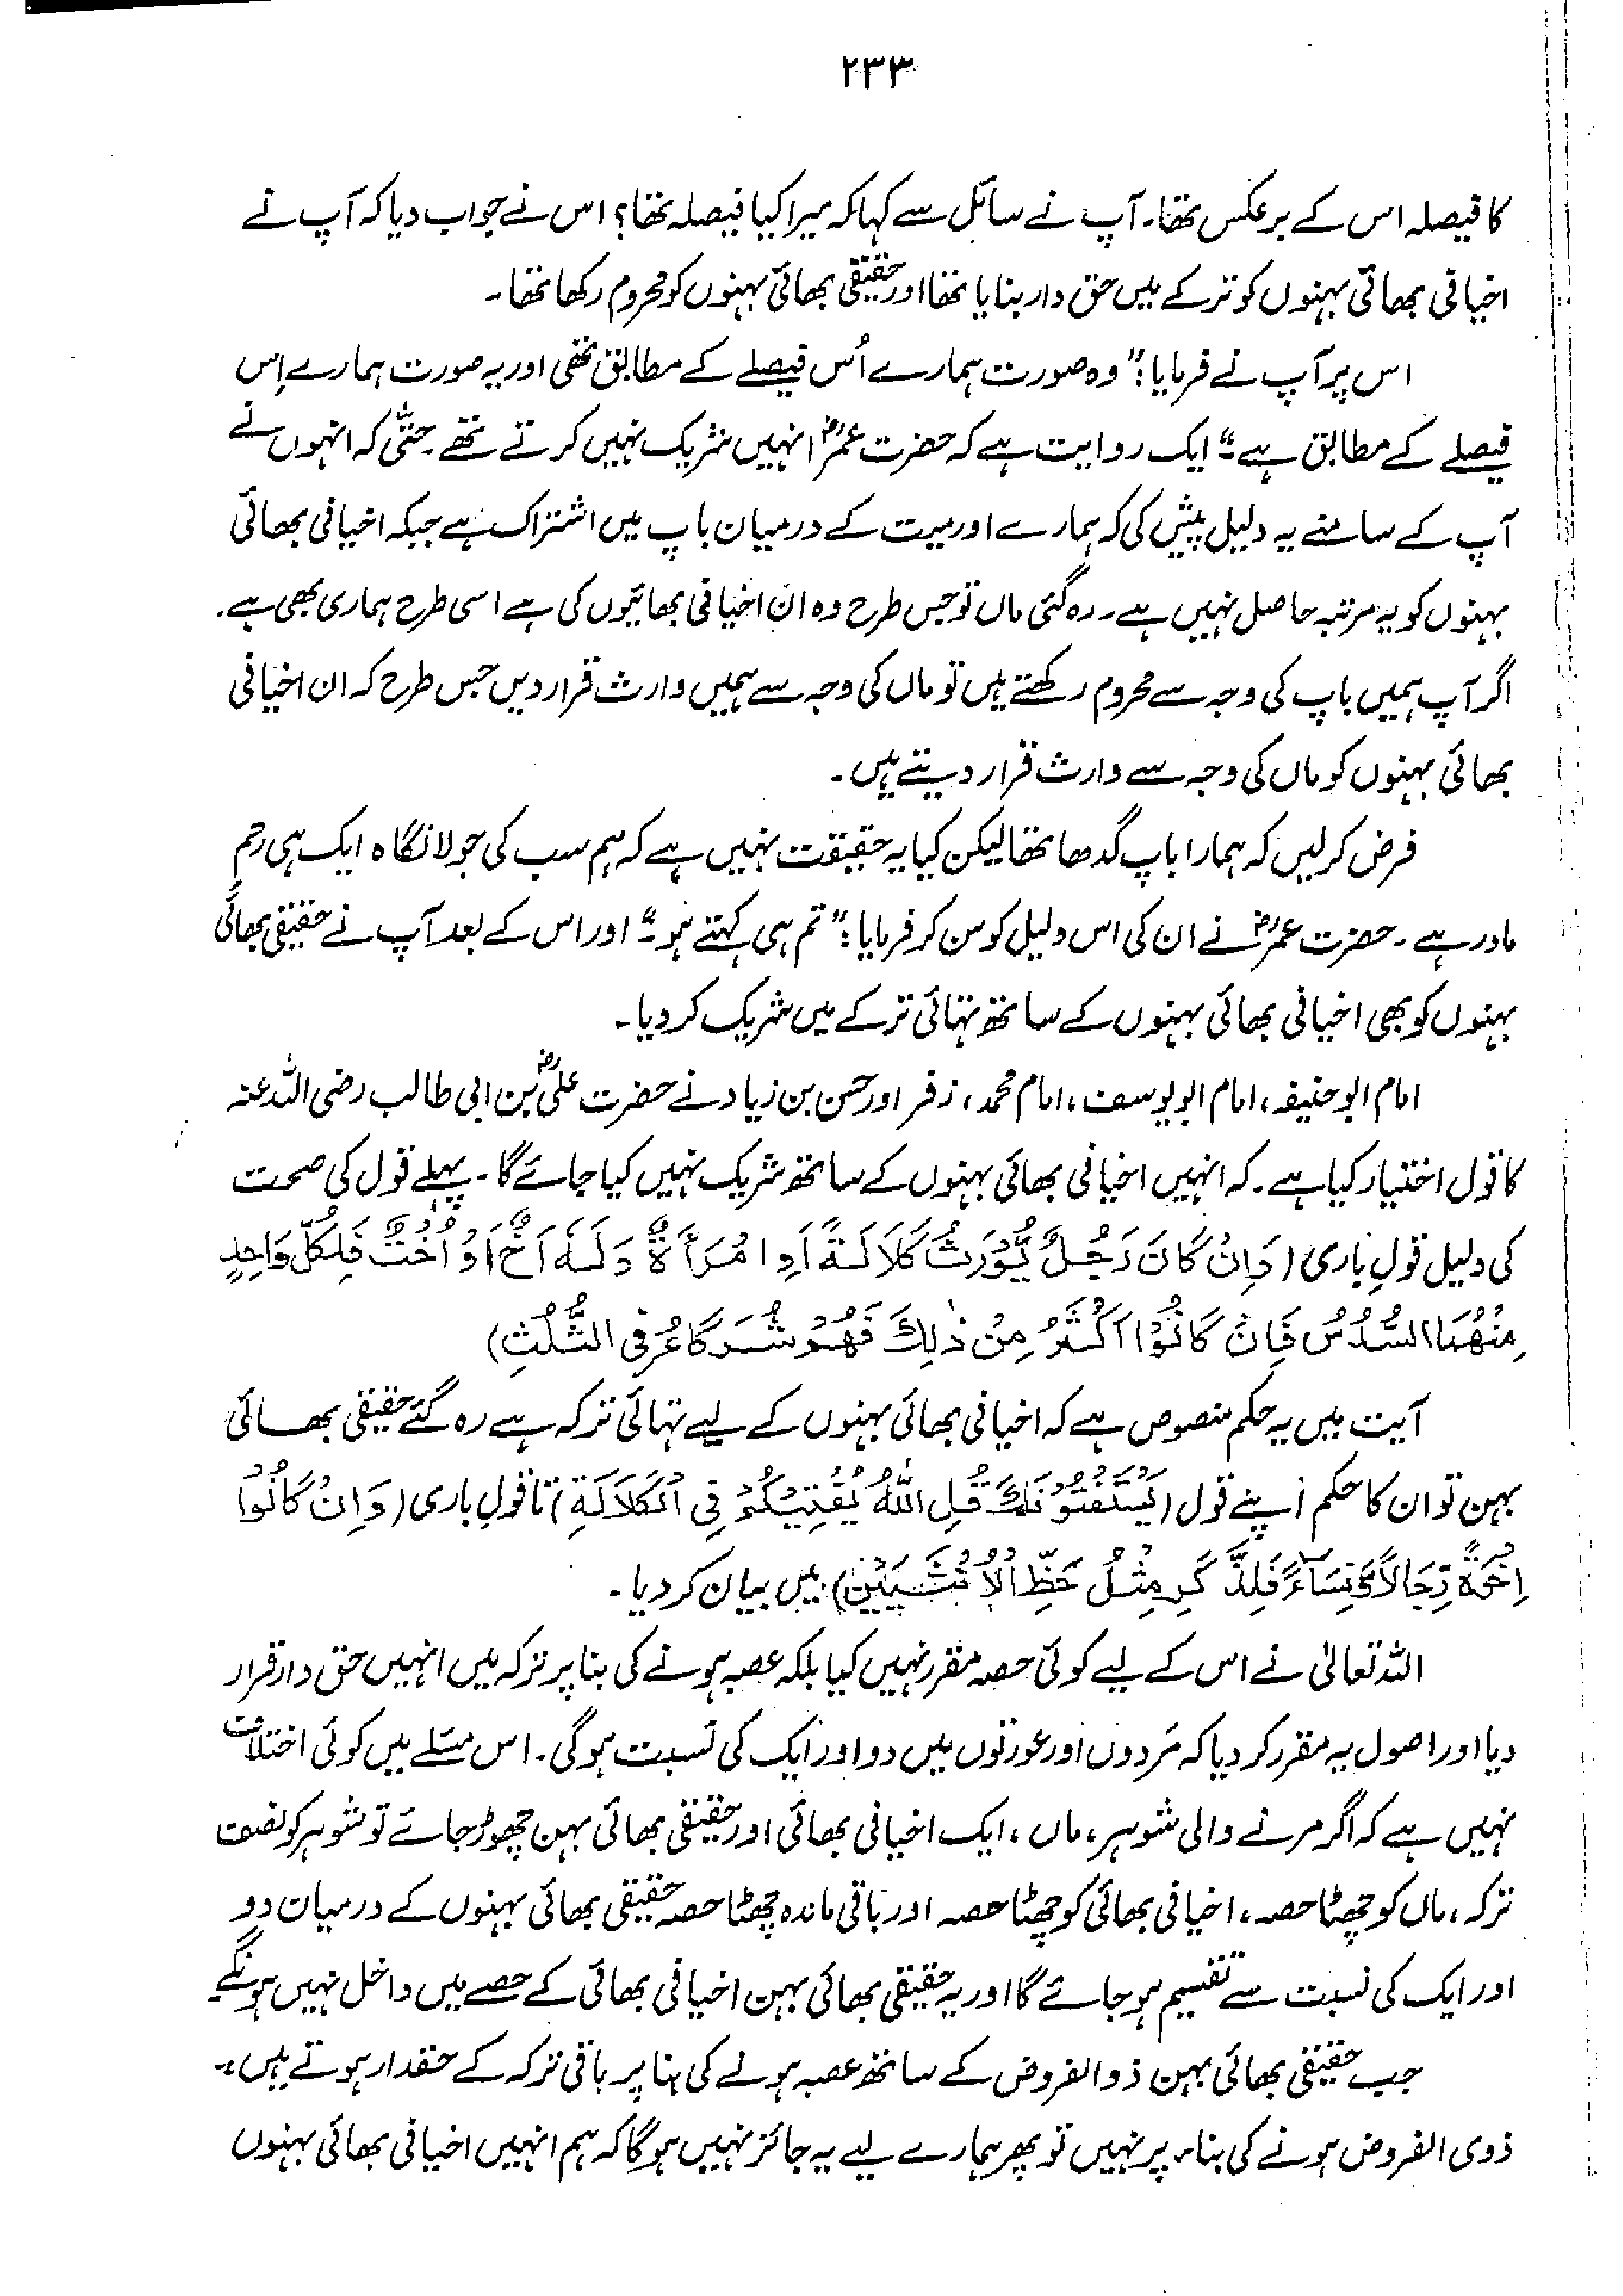 ۲۳۳
کا فیصلہ اس کے برعکس تھا۔ آپ نے سائل سے کہا کہ میرا کیا فیصلہ تھا؟ اس نے جواب دیا کہ آپ نے
اخیافی بھائی بہنوں کو ترکے میں حق دار بنایا تھا اور حقیقی بھائی بہنوں کو محروم رکھا تھا۔
اس پر آپ نے فرمایا: "وہ صورت ہمارے اُس فیصلے کے مطابق تھی اور یہ صورت ہمارے اِس
فیصلے کے مطابق ہے"۔ ایک روایت ہے کہ حضرت عمرؓ انہیں شریک نہیں کرتے تھے۔ حتّٰی کہ انہوں نے
آپ کے سامنے یہ دلیل پیش کی کہ ہمارے اور میت کے درمیان باپ میں اشتراک ہے جبکہ اخیافی بھائی
بہنوں کو یہ مرتبہ حاصل نہیں ہے۔ رہ گئی ماں تو جس طرح وہ ان اخیافی بھائیوں کی ہے اسی طرح ہماری بھی ہے۔
اگر آپ ہمیں باپ کی وجہ سے محروم رکھتے ہیں تو ماں کی وجہ سے ہمیں وارث قرار دیں جس طرح کہ ان اخیافی
بھائی بہنوں کو ماں کی وجہ سے وارث قرار دیتے ہیں۔
فرض کر لیں کہ ہمارا باپ گدھا تھا لیکن کیا یہ حقیقت نہیں ہے کہ ہم سب کی جولانگاہ ایک ہی رحمِ
مادر ہے۔ حضرت عمرؓ نے ان کی اس دلیل کو سن کر فرمایا: "تم ہی کہتے ہو"۔ اور اس کے بعد آپ نے حقیقی بھائی
بہنوں کو بھی اخیافی بھائی بہنوں کے ساتھ تہائی ترکے میں شریک کر دیا۔
امام ابو حنیفہ، امام ابو یوسف، امام محمد، زفر اور حسن بن زیاد نے حضرت علیؓ بن ابی طالب رضی اللہ عنہ
کا قول اختیار کیا ہے۔ کہ انہیں اخیافی بھائی بہنوں کے ساتھ شریک نہیں کیا جائے گا۔ پہلے قول کی صحت
کی دلیل قولِ باری (وَاِنْ كَانَ رَجُلٌ يُّوْرَثُ كَلَالَةً اَوِ امْرَاَةٌ وَلَهٗ اَخٌ اَوْ اُخْتٌ فَلِكُلِّ وَاحِدٍ
مِنْهُمَا السُّدُسُ فَاِنْ كَانُوْا اَكْثَرَ مِنْ ذٰلِكَ فَهُمْ شُرَكَاءُ فِى الثُّلُثِ)
آیت میں یہ حکم منصوص ہے کہ اخیافی بھائی بہنوں کے لیے تہائی ترکہ ہے رہ گئے حقیقی بھائی
بہن تو ان کا حکم اپنے قول (يَسْتَفْتُوْنَكَ قُلِ اللّٰهُ يُفْتِيْكُمْ فِى الْكَلَالَةِ) تا قول باری (وَاِنْ كَانُوْا
اِخْوَةً رِّجَالًا وَّنِسَاءً فَلِلذَّكَرِ مِثْلُ حَظِّ الْاُنْثَيَيْنِ) میں بیان کر دیا۔
اللہ تعالیٰ نے اس کے لیے کوئی حصہ مقرر نہیں کیا بلکہ عصبہ ہونے کی بنا پر ترکہ میں انہیں حق دار قرار
دیا اور اصول یہ مقرر کر دیا کہ مَردوں اور عورتوں میں دو اور ایک کی نسبت ہو گی۔ اس مسئلے میں کوئی اختلاف
نہیں ہے کہ اگر مرنے والی شوہر، ماں، ایک اخیافی بھائی اور حقیقی بھائی بہن چھوڑ جائے تو شوہر کو نصف
ترکہ، ماں کو چھٹا حصہ، اخیافی بھائی کو چھٹا حصہ اور باقی ماندہ چھٹا حصہ حقیقی بھائی بہنوں کے درمیان دو
اور ایک کی نسبت سے تقسیم ہو جائے گا اور یہ حقیقی بھائی بہن اخیافی بھائی کے حصے میں داخل نہیں ہونگے۔
جب حقیقی بھائی بہن ذوالفروض کے ساتھ عصبہ ہونے کی بنا پر باقی ترکہ کے حقدار ہوتے ہیں،
ذوی الفروض ہونے کی بناء پر نہیں تو پھر ہمارے لیے یہ جائز نہیں ہوگا کہ ہم انہیں اخیافی بھائی بہنوں